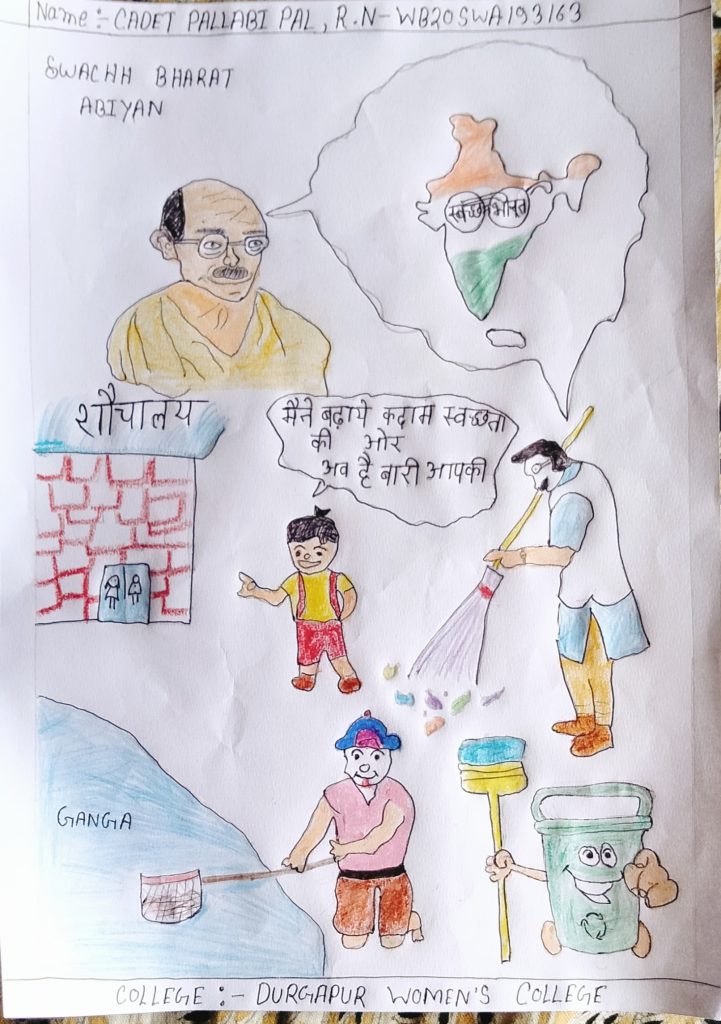 Name:- CADET PALLABI PAL, R.N- WB20SWA193163
SWACHH BHARAT
ABIYAN
स्वच्छ भारत
शौचालय
मैंने बढ़ाये कदाम स्वच्छता
की ओर
अव है बारी आपकी
GANGA
COLLEGE :- DURGAPUR WOMEN'S COLLEGE